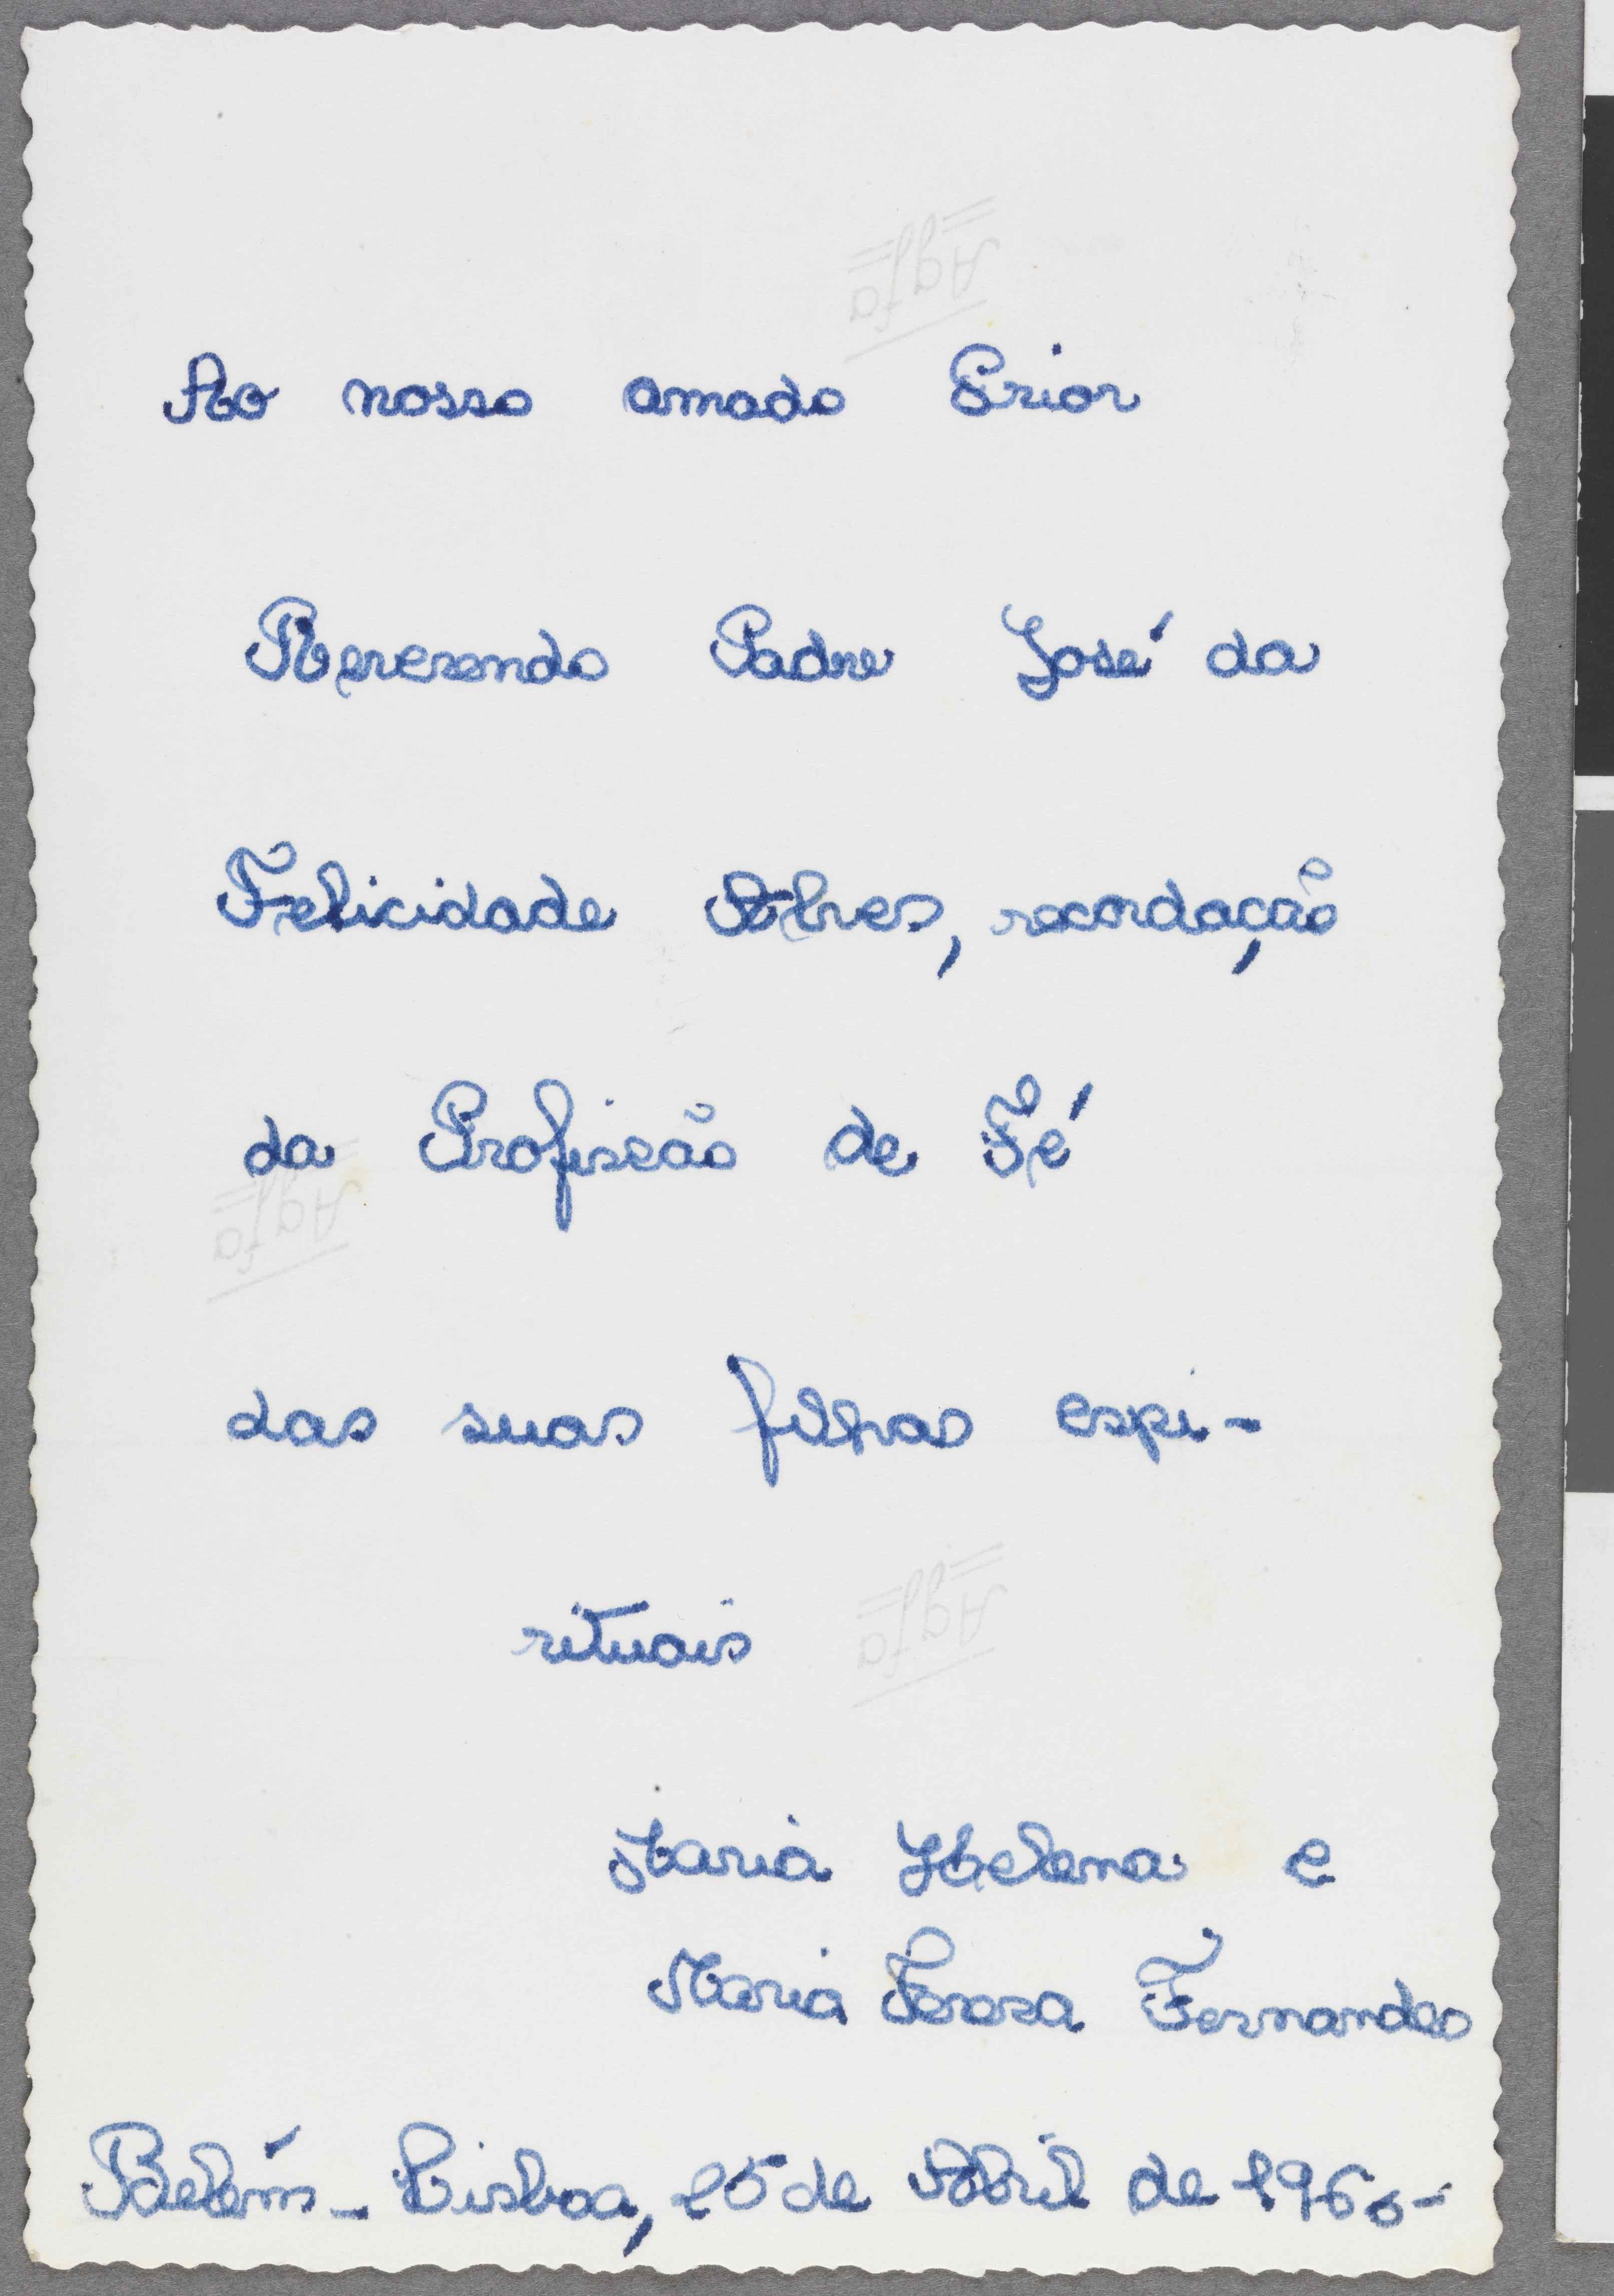 Ao nosso amado Prior
Reverendo Padre José da
Felicidade Alves, recordação
da Profissão de Fé
das suas filhas espi-
rituais
Maria Helena e
Maria Teresa Fernandes
Belém - Lisboa, de Abril de 1960-
Agfa
Agfa
Agfa